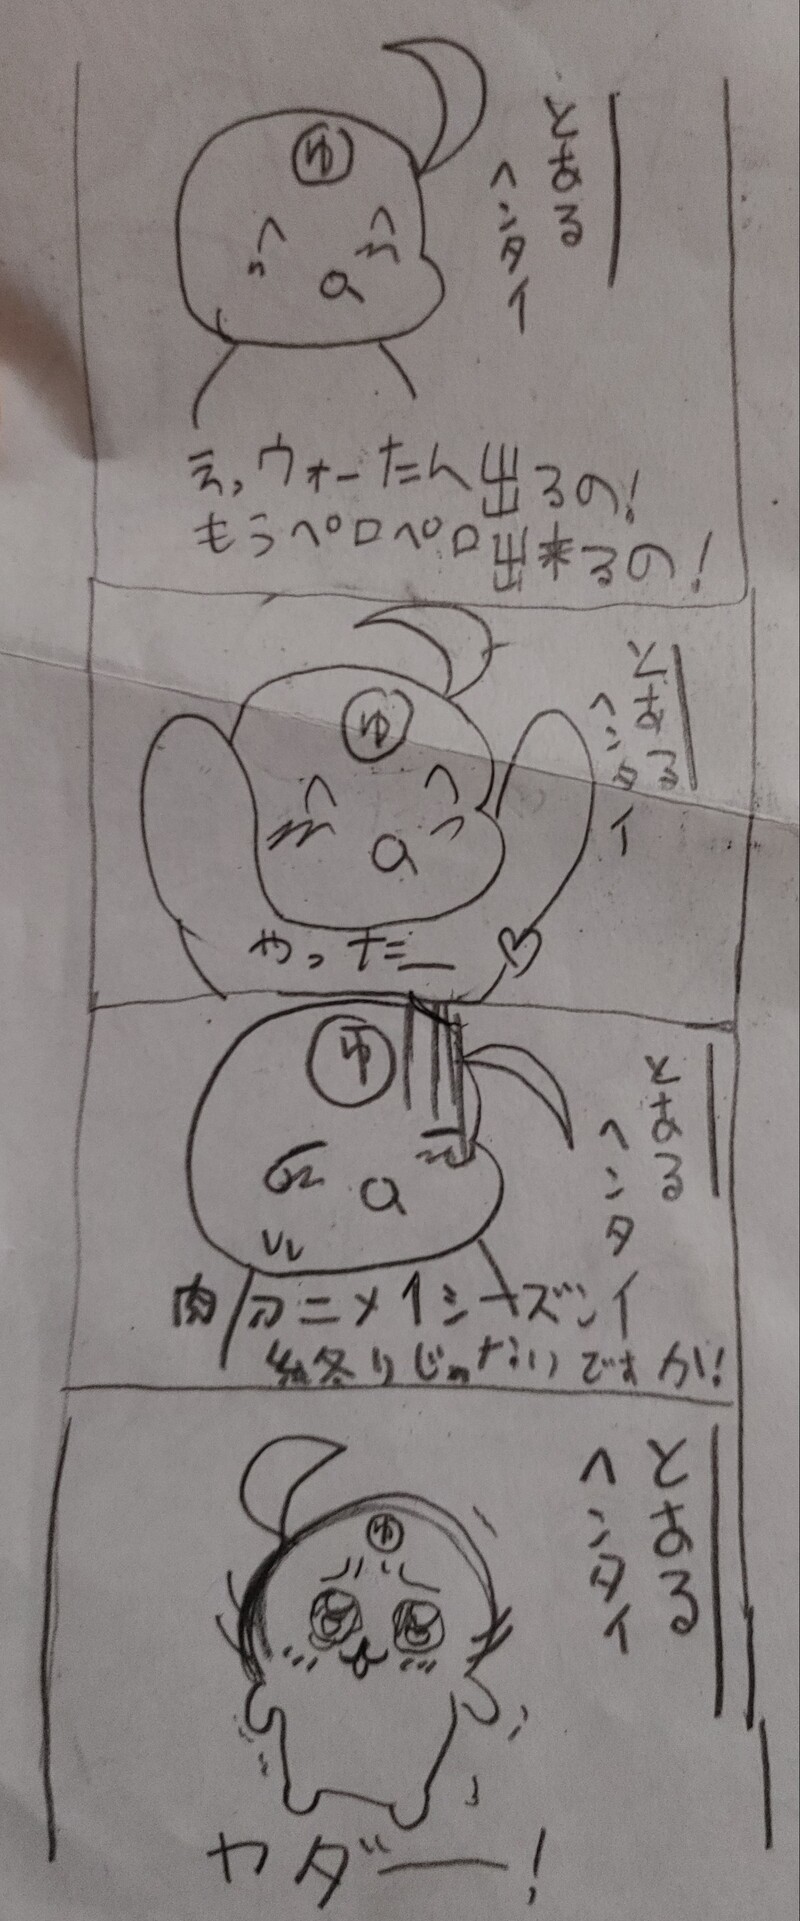 とある
ヘンタイ
ゆ
え、ウォーたん出るの!
もうペロペロ出来るの!
とある
ヘンタイ
ゆ
やったー♡
とある
ヘンタイ
ゆ
肉アニメ1シーズン1
終りじゃないですか!
とある
ヘンタイ
ゆ
ヤダー!